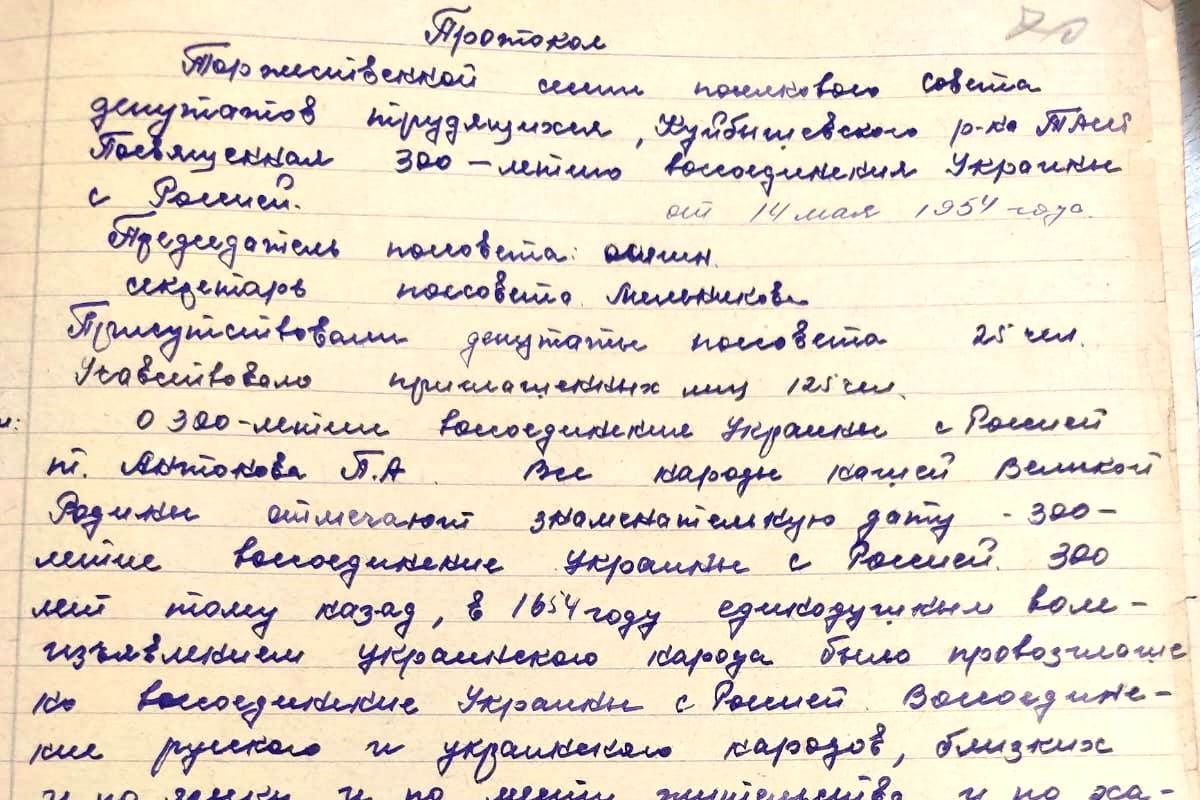 Протокол
Торжественной сессии поселкового совета
депутатов трудящихся, Куйбышевского р-на ТАССР
Посвященная 300-летию воссоединения Украины
с Россией.
от 14 мая 1954 года.
Председатель поссовета:
секретарь поссовета. Мельникова
Присутствовали депутаты поссовета 25 чел.
Учавствовало приглашенных лиц 125 чел.
О 300-летии воссоединение Украины с Россией
т. Антонова П.А. Все народы нашей Великой
Родины отмечают знаменательную дату - 300-
летие воссоединение Украины с Россией. 300
лет тому назад, в 1654 году единодушным воле-
изъявлением украинского народа было провозглаше
но воссоединение Украины с Россией. Воссоедине-
ние русского и украинского народов, близких
и по языку и по месту жительства и по ха-